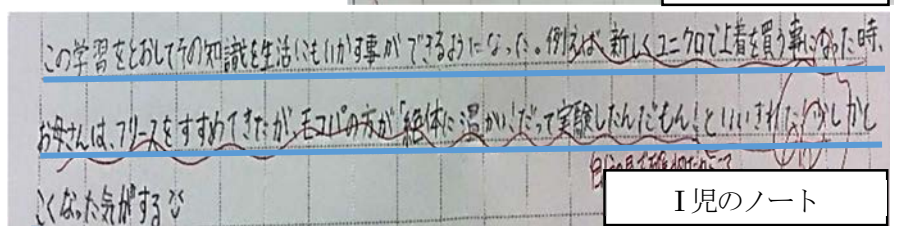 この学習をとおしてその知識を生活にもいかす事ができるようになった。例えば、新しくユニクロで上着を買う事になった時、
お母さんは、フリースをすすめてきたが、モコパの方が「絶体に温かい!だって実験したんだもん!」といいきれた。少しかし
こくなった気がする
I児のノート